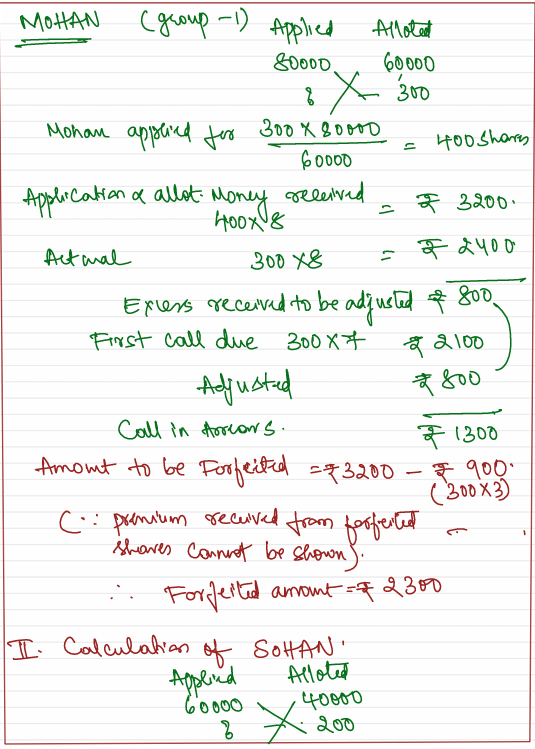 MOHAN (group-1) Applied Alloted
80000 60000
? 300
Mohan applied for 300 × 80000 / 60000 = 400 Shares
Application & allot. Money received
400×8 = ₹ 3200.
Actual 300 ×8 = ₹ 2400
Excess received to be adjusted ₹ 800
First call due 300×7 ₹ 2100
Adjusted ₹ 800
Call in Arrears. ₹ 1300
Amount to be Forfeited = ₹3200 – ₹ 900.
(300×3)
(∵ premium received from forfeited
shares cannot be shown).
∴ Forfeited amount = ₹ 2300
II. Calculation of SOHAN.
Applied Alloted
60000 40000
? 200